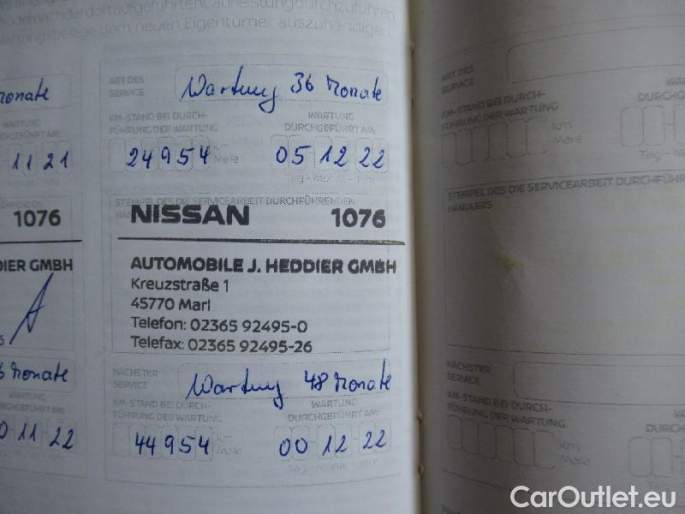 auszuhändigen
ART DES
SERVICE
Wartung 36 Monate
Monate
KM-STAND BEI DURCH-
FÜHRUNG DER WARTUNG
WARTUNG
DURCHGEFÜHRT AM:
11 21
24954
05 12 22
STEMPEL DES DIE SERVICEARBEIT DURCHFÜHRENDEN
1076
NISSAN 1076
DIER GMBH
AUTOMOBILE J. HEDDIER GMBH
Kreuzstraße 1
45770 Marl
Telefon: 02365 92495-0
Telefax: 02365 92495-26
6 Monate
NÄCHSTER
SERVICE
Wartung 48 Monate
KM-STAND BEI DURCH-
FÜHRUNG DER WARTUNG
WARTUNG
DURCHGEFÜHRT AM:
0 11 22
44954
00 12 22
ART DES
SERVICE
KM-STAND BEI DURCH-
FÜHRUNG DER WARTUNG
km
Meile
STEMPEL DES DIE SERVICEARBEIT DURCHFÜHRENDEN
HÄNDLERS
NÄCHSTER
SERVICE
KM-STAND BEI DURCH-
FÜHRUNG DER WARTUNG
CarOutlet.eu